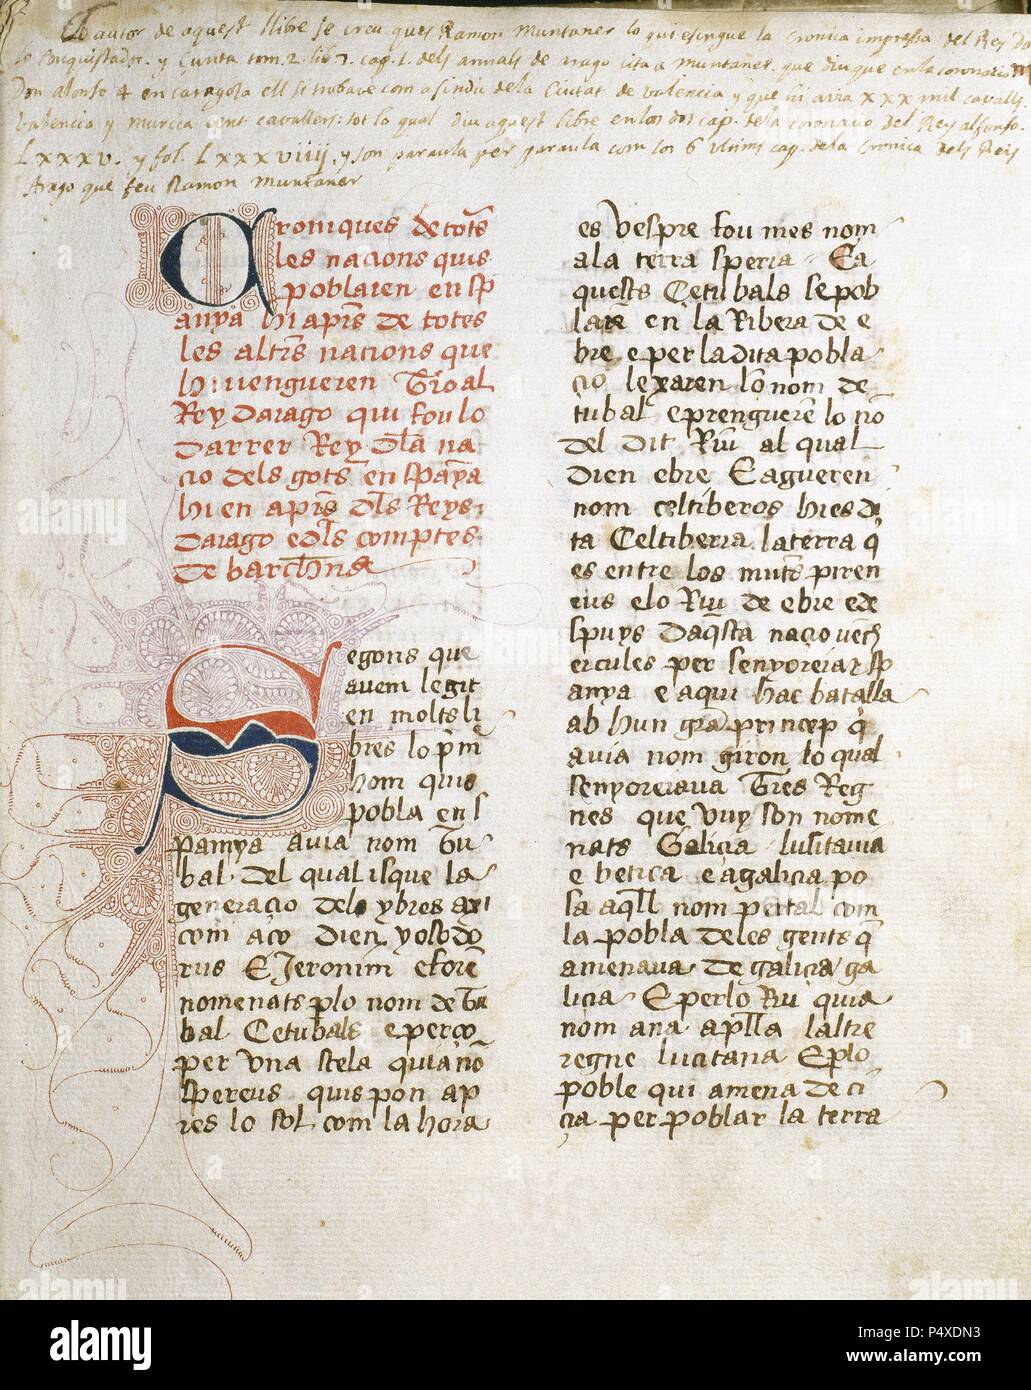 Lo autor de aquest llibre se creu ques Ramon Muntaner lo qui escrigue la Cronica impressa del Rey
lo Conquistador. y Çurita tom. 2. lib 7. cap. 1. dels annals de arago cita a muntaner que diu que en la coronacio
Don alonso 4 en caragoça ell si trobave com a sindic de la Ciutat de valencia y que hi avia xxx mil cavalls.
valencia y murcia cent cavallers: tot lo qual diu aquest libre en los dos cap. de la coronacio del Rey alfonso.
Lxxxv. y fol. Lxxxviiij. y son paraula per paraula com los 6 ultims cap. de la Cronica dels Reis
Arago que feu Ramon muntaner
Croniques de totˢ
les nacions quis
poblaren en sp
anya hi apᵉs de totes
les altrˢ nacions que
hi vengueren Tro al
Rey darago qui fou lo
darrer Rey dla na
cio dels gots en spāya
hi en apᵉs dls Reys
darago e dls comptes
de barchna
Segons que
avem legit
en molts li
bres lo pᵐ
hom quis
pobla en s
panya avia nom Tu
bal. Del qual isque la
generacio dels ybres axi
com aço dien ysodo
rus E Jeronim e foren
nomenats plo nom de tu
bal Cetubals e perço
per vna stela quia nō
spereus quis pon ap
res lo sol com la hora
es vespre fou mes nom
ala terra speria. Ea
quests Cetubals se pob
lare en la Ribera de e
bre e per la dita pobla
cio lexaren lō nom de
tubal e prengueren lo nō
del dit Riu al qual
dien ebre E agueren
nom celtiberos hi es di
ta Celtiberia la terra q̄
es entre los munts piren
eus e lo Riu de ebre e de
spuys daqsta nacio vench
ercules per senyoreiar sp
anya e aqui hac batalla
ab hun gran princep q̄
avia nom giron lo qual
senyoreiava Tres Reg
nes que vuy son nome
nats Galicia lusitania
e betica e a galicia po
sa aqll nom pertal com
la pobla deles gents q̄
amenava de galicia ga
licia. E per lo Riu quia
nom ana apllà laltre
regne lucitana E plo
poble qui amena de ci
cia per poblar la terra
alamy
Image ID: P4XDN3
www.alamy.com